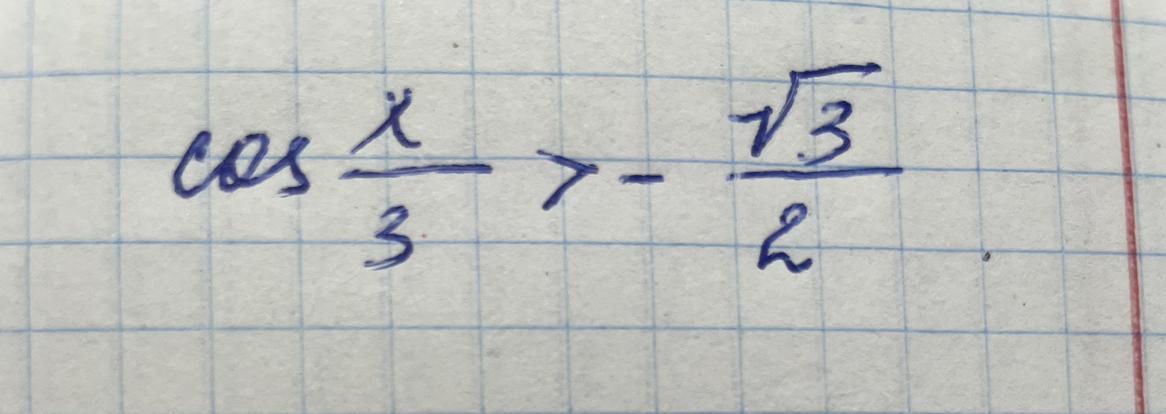 cos x/3 > - √3/2